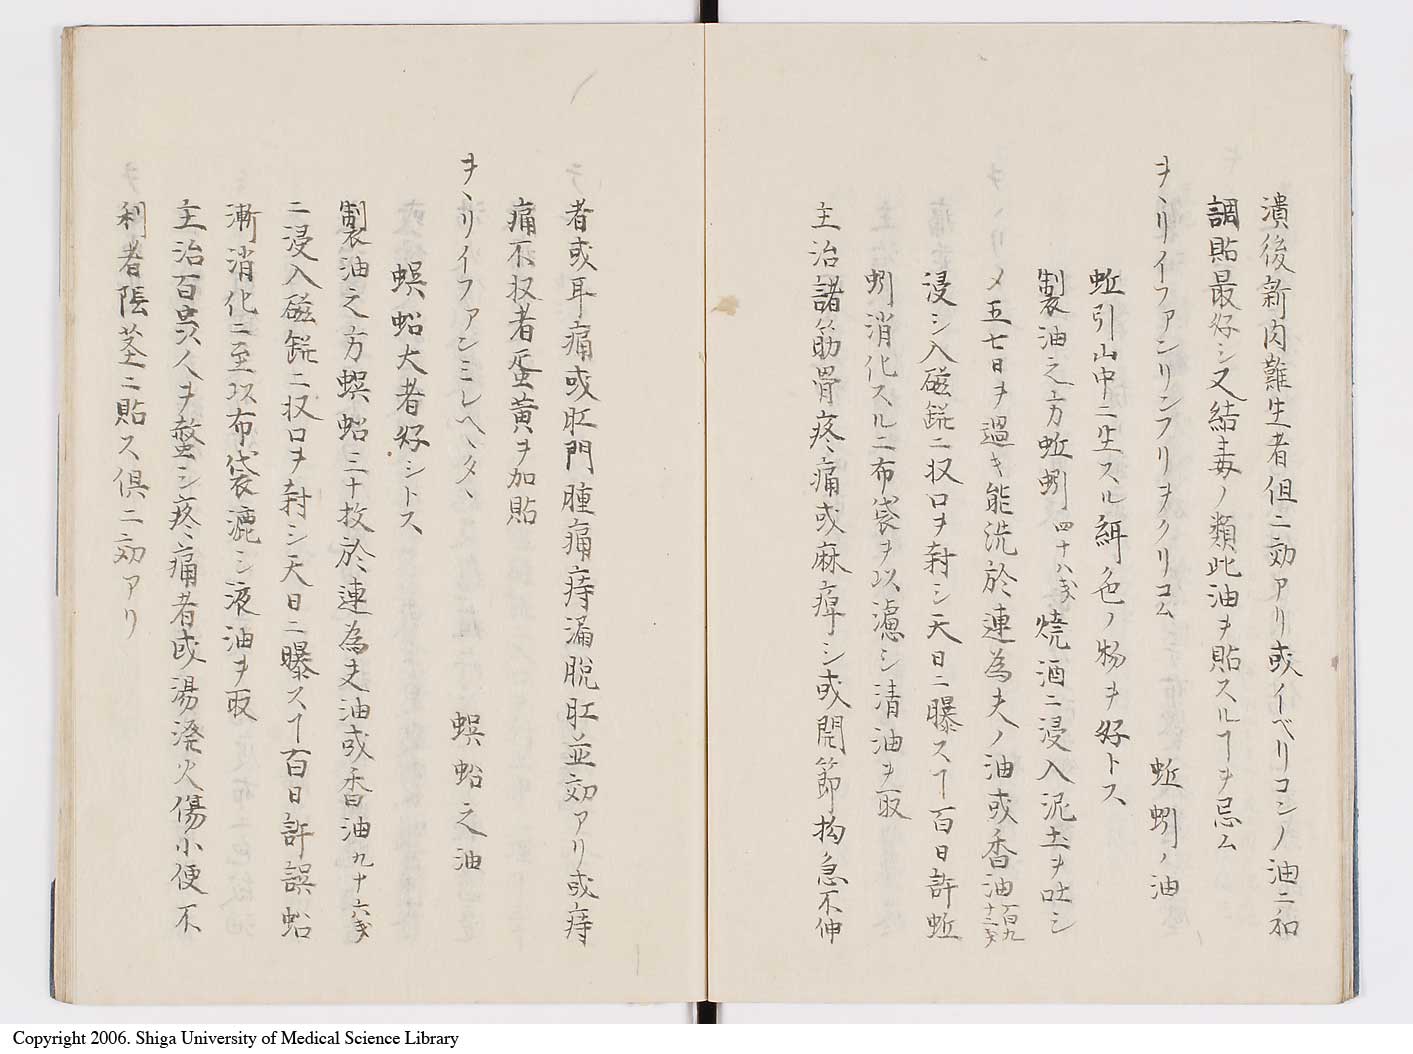 潰後新肉難生者但ニ効アリ或イベリコンノ油ニ和
調貼最好シ又結毒ノ類此油ヲ貼スルヿヲ忌ム
ヲヽリイファンリンフリヲクリコム 蚯蚓ノ油
蚯引山中ニ生スル絳色ノ物ヲ好トス
製油之方蚯蚓四十八匁焼酒ニ浸入泥土ヲ吐シ
メ五七日ヲ過キ能洗於連為夫ノ油或香油百九十二匁
浸シ入磁鋎ニ収口ヲ封シ天日ニ曝スヿ百日許蚯
蚓消化スルニ布袋ヲ以濾シ清油ヲ取
主治諸筋骨疼痛或麻痺シ或開節拘急不伸
者或耳痛或肛門腫痛痔漏脱肛並効アリ或痔
痛不収者蛋黄ヲ加貼
ヲヽリイファンミレヘヽタヽ 蜈蚣之油
蜈蚣大者好シトス
製油之方蜈蚣三十枚於連為夫油或香油九十六匁
ニ浸入磁鋎ニ収口ヲ封シ天日ニ曝スヿ百日許誤蚣
漸消化ニ至以布袋漉シ液油ヲ取
主治百虫人ヲ螫シ疼痛者或湯溌火傷小便不
利者陰茎ニ貼ス倶ニ効アリ
Copyright 2006. Shiga University of Medical Science Library